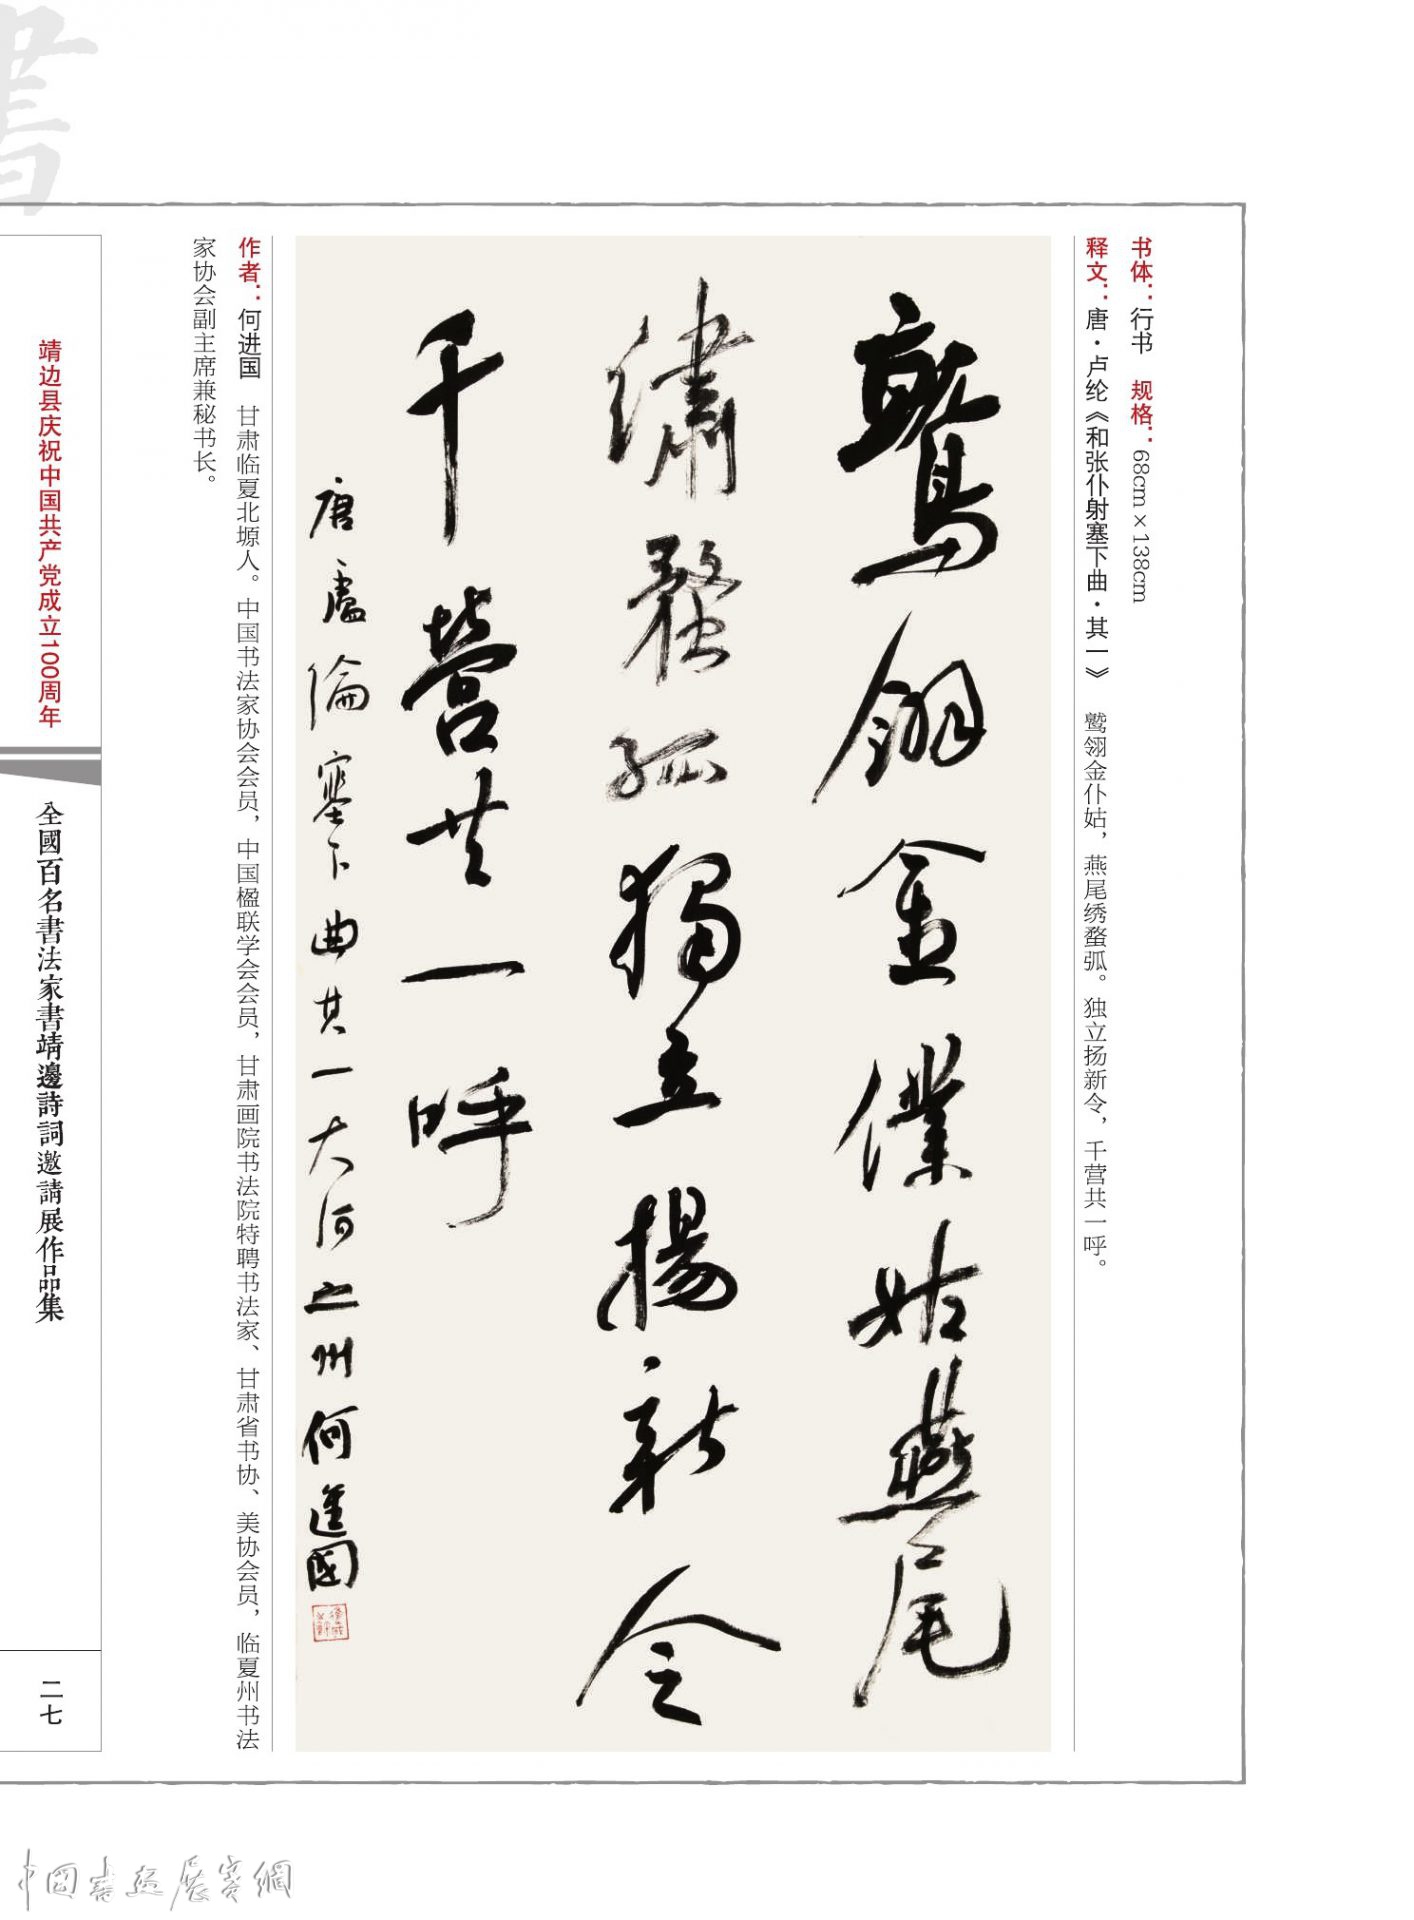 書
书体：行书　规格：68cm×138cm
释文：唐·卢纶《和张仆射塞下曲·其一》　鹫翎金仆姑，燕尾绣蝥弧。独立扬新令，千营共一呼。
鷲翎金僕姑燕尾
繡蝥弧獨立揚新令
千營共一呼
唐盧倫塞下曲其一大河之州何進國
作者：何进国　甘肃临夏北塬人。中国书法家协会会员，中国楹联学会会员，甘肃画院书法院特聘书法家、甘肃省书协、美协会员，临夏州书法
家协会副主席兼秘书长。
靖边县庆祝中国共产党成立100周年
全國百名書法家書靖邊詩詞邀請展作品集
二七
中國書畫展賽網